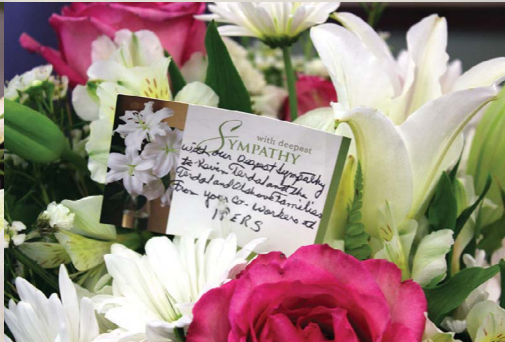 with deepest
SYMPATHY
with our deepest sympathy
to Kevin Terdal and the
Terdal and Olshove Families
From your co-workers at
IPERS